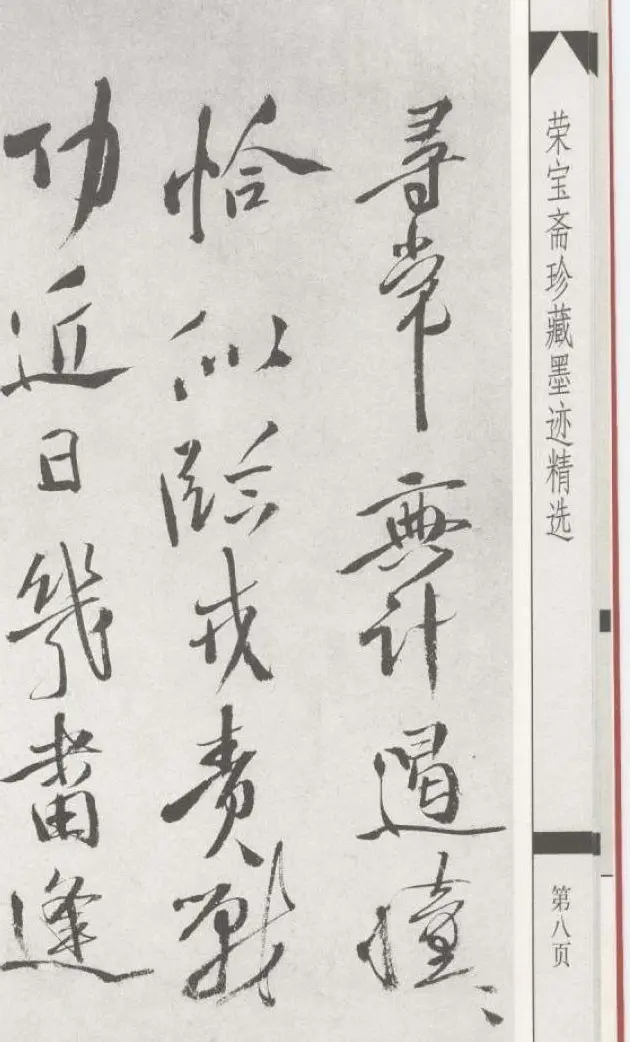 荣宝斋珍藏墨迹精选
第八页
尋常無計遏憧〻
恰似臨戎責戰
功近日幾番逢